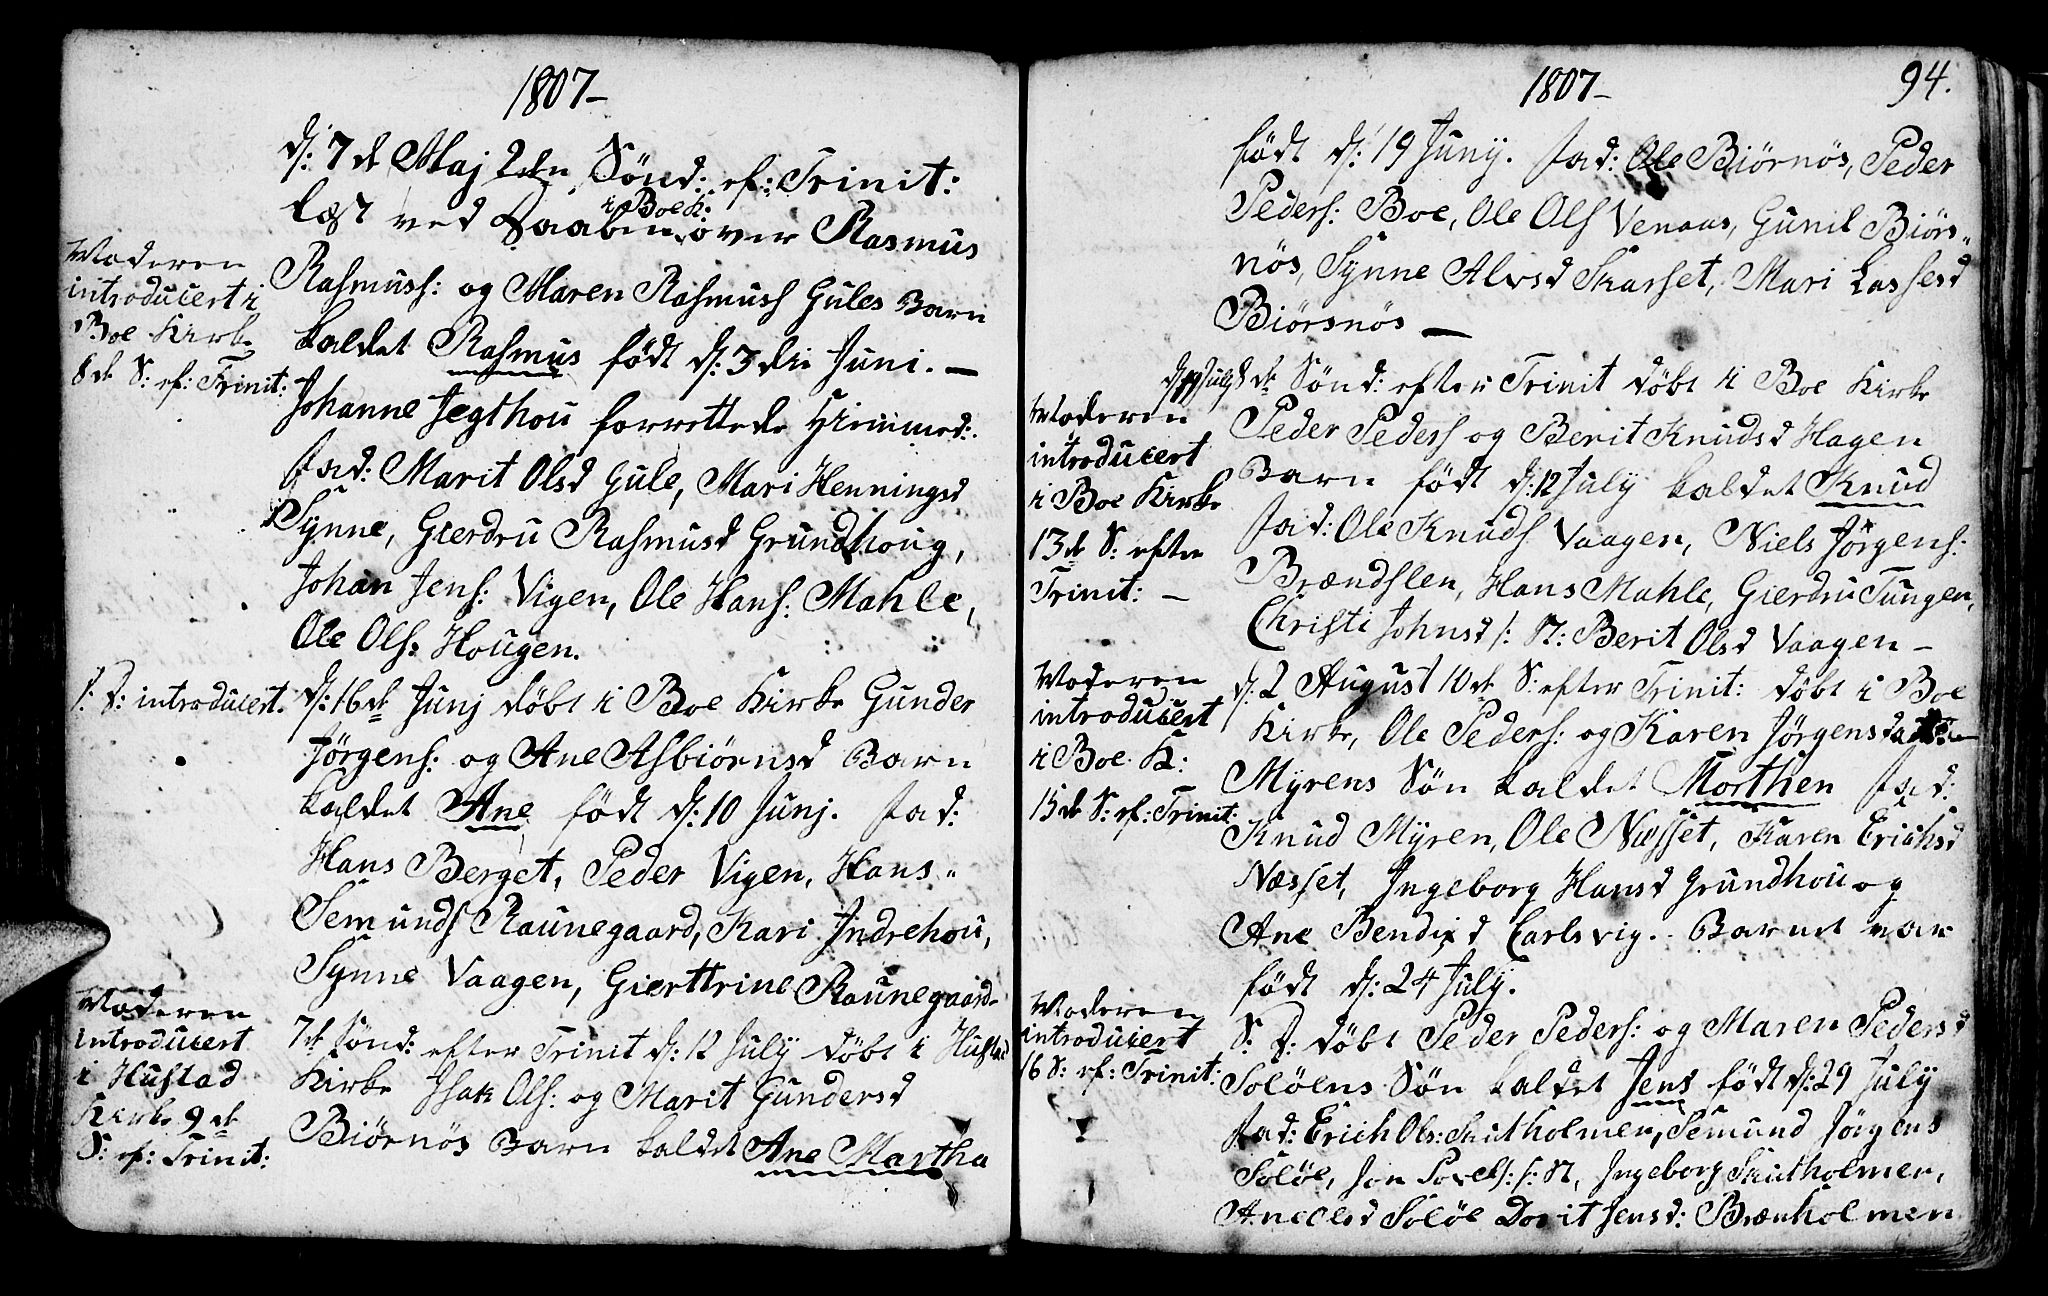 1807-
d: 7 de Maj 2den Sönd: ef: Trinit:
læst ved Daaben over Rasmus
i Boe K:
Rasmuss: og Maren Rasmusd Gules Barn
kaldet Rasmus födt d: 3die Juni. -
Johanne Jegthou forrettede Hiemmed:
Fad: Marit Olsd Gule, Mari Henningsd
Synne, Gierdru Rasmusd Grundhoug,
Johan Jens: Vigen, Ole Hans: Mahle,
Ole Ols: Hougen.
d: 16de Junj döbt i Boe Kirke Gunder
Jörgens: og Ane Asbiörnsd Barn
kaldet Ane födt d: 10 Junj. Fad:
Hans Berget, Peder Vigen, Hans
Semunds Raunegaard, Kari Indrehou,
Synne Vaagen, Gierttrine Raunegaard-
7de Sönd: efter Trinit d: 12 July döbt i Hustad
Kirke Isak Ols: og Marit Gundersd
Biörnös Barn kaldet Ane Martha
Moderen
introducert i
Boe Kirke
8de S: ef: Trinit:
S: D: introducert.
Moderen
introducert
i Hustad
Kirke 9de
S: ef: Trinit:
1807-
94.
födt d: 19 Junj. Fad: Ole Biörnös, Peder
Peders: Boe, Ole Ols Venaas, Gunil Biörs-
nös, Synne Alvsd Skarset, Mari Lassesd
Biörsnös -
d: 19 July 8de Sönd: efter Trinit döbt i Boe Kirke
Peder Peders og Berit Knudsd Hagen
Barn födt d: 12 July kaldet Knud
Fad: Ole Knuds Vaagen, Niels Jörgens:
Brændslen, Hans Mahle, Gierdru Tungen,
Christi Johnsd s: st: Berit Olsd Vaagen -
d: 2 August 10de S: efter Trinit: döbt i Boe
Kirke, Ole Peders: og Karen Jörgensdatter
Myrens Sön kaldet Morthen Fad:
Knud Myren, Ole Næsset, Karen Erichsd
Næsset, Ingeborg Hansd Grundhou og
Ane Bendixd Carlsvig. Barnet var
födt d: 24 July.
S: D: döbt Peder Peders: og Maren Pedersd
Solöens Sön kaldet Jens födt d: 29 July
Fad: Erich Ols: Skutholmen, Semund Jörgens
Solöe, Jon Povels: s: st, Ingeborg Skutholmen,
Ane Olsd Solöe Dorit Jensd: Brænholmen
Moderen
introducert
i Boe Kirke
13de S: efter
Trinit: -
Moderen
introducert
i Boe K:
15de S: ef: Trinit:
Moderen
introducert
16 S: ef: Trinit: